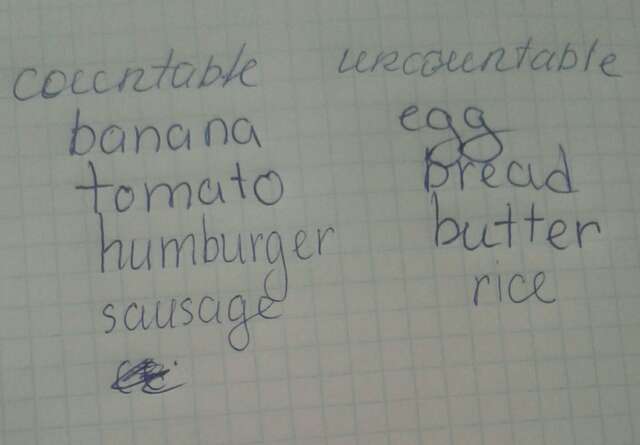 countable uncountable
banana egg
tomato bread
humburger butter
sausage rice